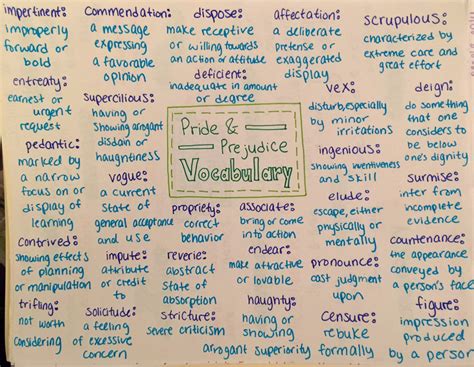 impertinent:
improperly
forward or
bold
commendation:
a message
expressing
a favorable
opinion
dispose:
make receptive
or willing towards
an action or attitude
affectation:
a deliberate
pretense or
exaggerated
display
scrupulous:
characterized by
extreme care and
great effort
entreaty:
earnest or
urgent
request
supercilious:
having or
showing arrogant
disdain or
haughtiness
deficient:
inadequate in amount
or degree
vex:
disturb, especially
by minor
irritations
deign:
do something
that one
considers to
be below
one's dignity
pedantic:
marked by
a narrow
focus on or
display of
learning
vogue:
a current
state of
general acceptance
and use
Pride &
Prejudice
Vocabulary
ingenious:
showing inventiveness
and skill
surmise:
infer from
incomplete
evidence
propriety:
correct
behavior
associate:
bring or come
into action
elude:
escape, either
physically or
mentally
contrived:
showing effects
of planning
or manipulation
impute:
attribute
or credit
to
reverie:
abstract
state of
absorption
endear:
make attractive
or lovable
pronounce:
cast judgment
upon
countenance:
the appearance
conveyed by
a person's face
trifling:
not worth
considering
solicitude:
a feeling
of excessive
concern
stricture:
severe criticism
haughty:
having or
showing
arrogant superiority
censure:
rebuke
formally
figure:
impression
produced
by a person